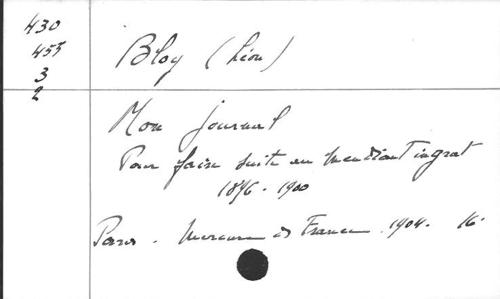 430
455
3
2
Bloy (Léon)
Mon journal
Pour faire suite au Mendiant ingrat
1896-1900
Paris. Mercure de France. 1904. 16°